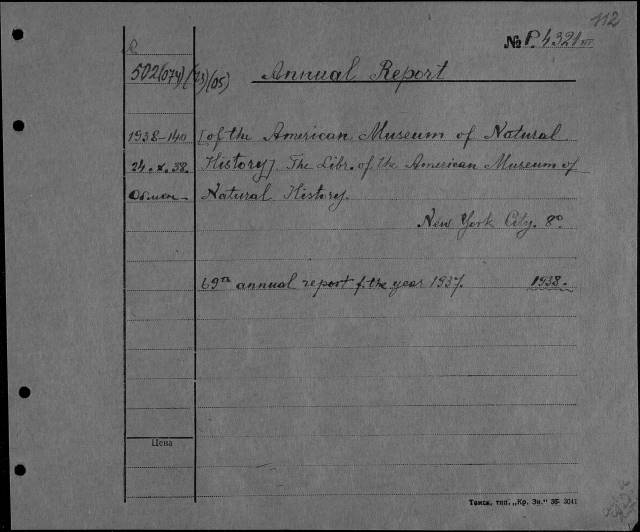 112
R
№ P. 4321 III
502(074)(73)(05) Annual Report
1938-140 [of the American Museum of Natural
24.X.38. History]. The Libr. of the American Museum of
Обмен- Natural History.
New York City. 8°.
69th annual report f. the year 1937. 1938.-
Цена
Томск, тип. „Кр. Зн.“ 3041